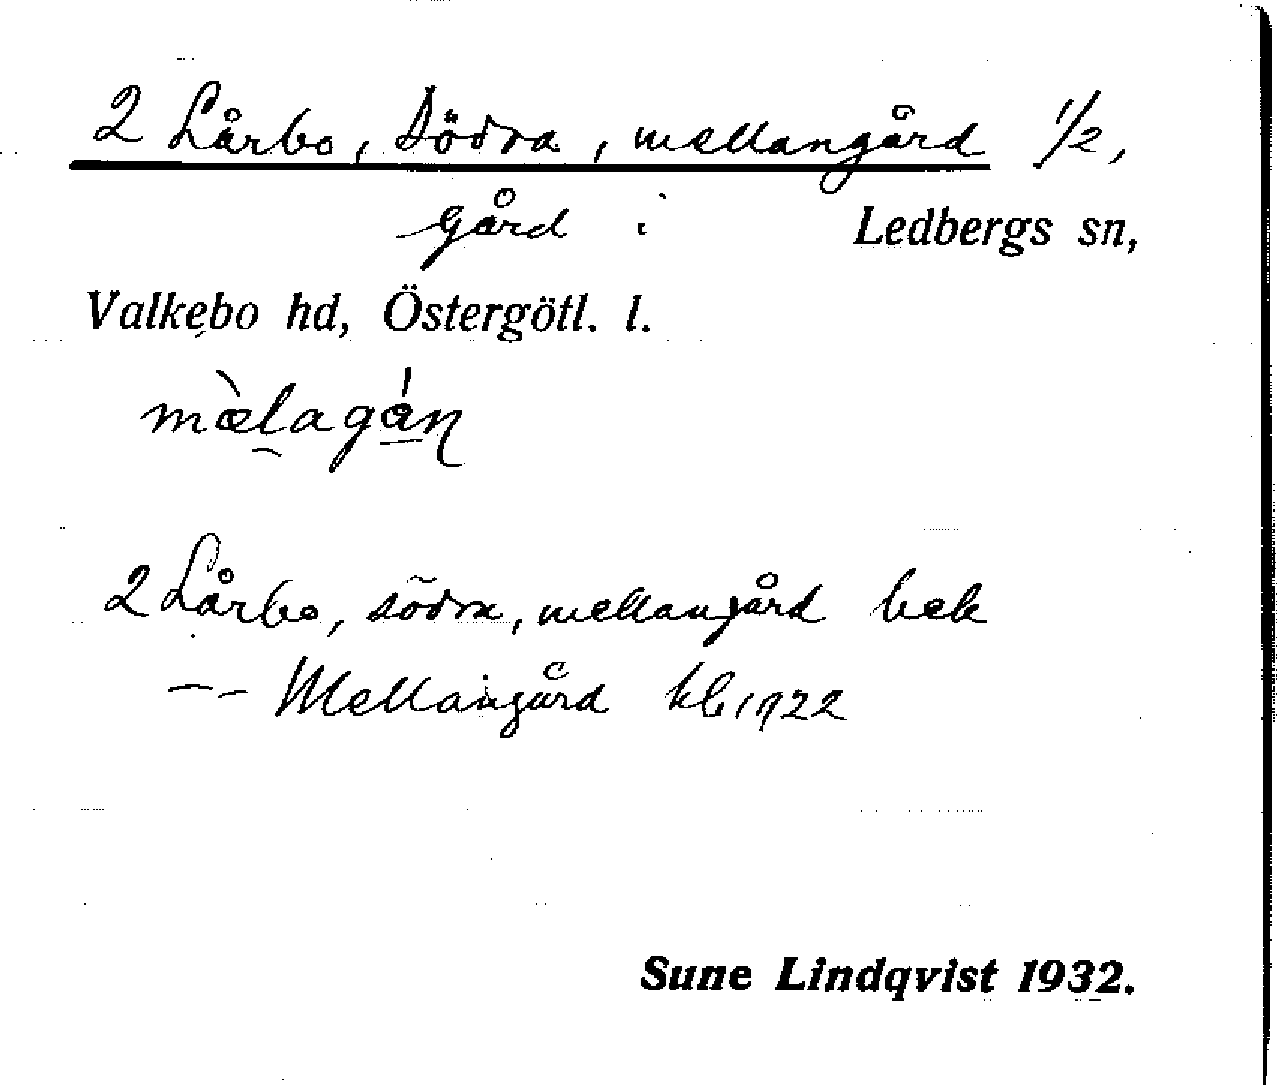 2 Lårbo, Södra, mellangård 1/2,
gård i Ledbergs sn,
Valkebo hd, Östergötl. l.
mæ̀lagáɳ
2 Lårbo, södra, mellangård bek
— - Mellangård kb 1722
Sune Lindqvist 1932.